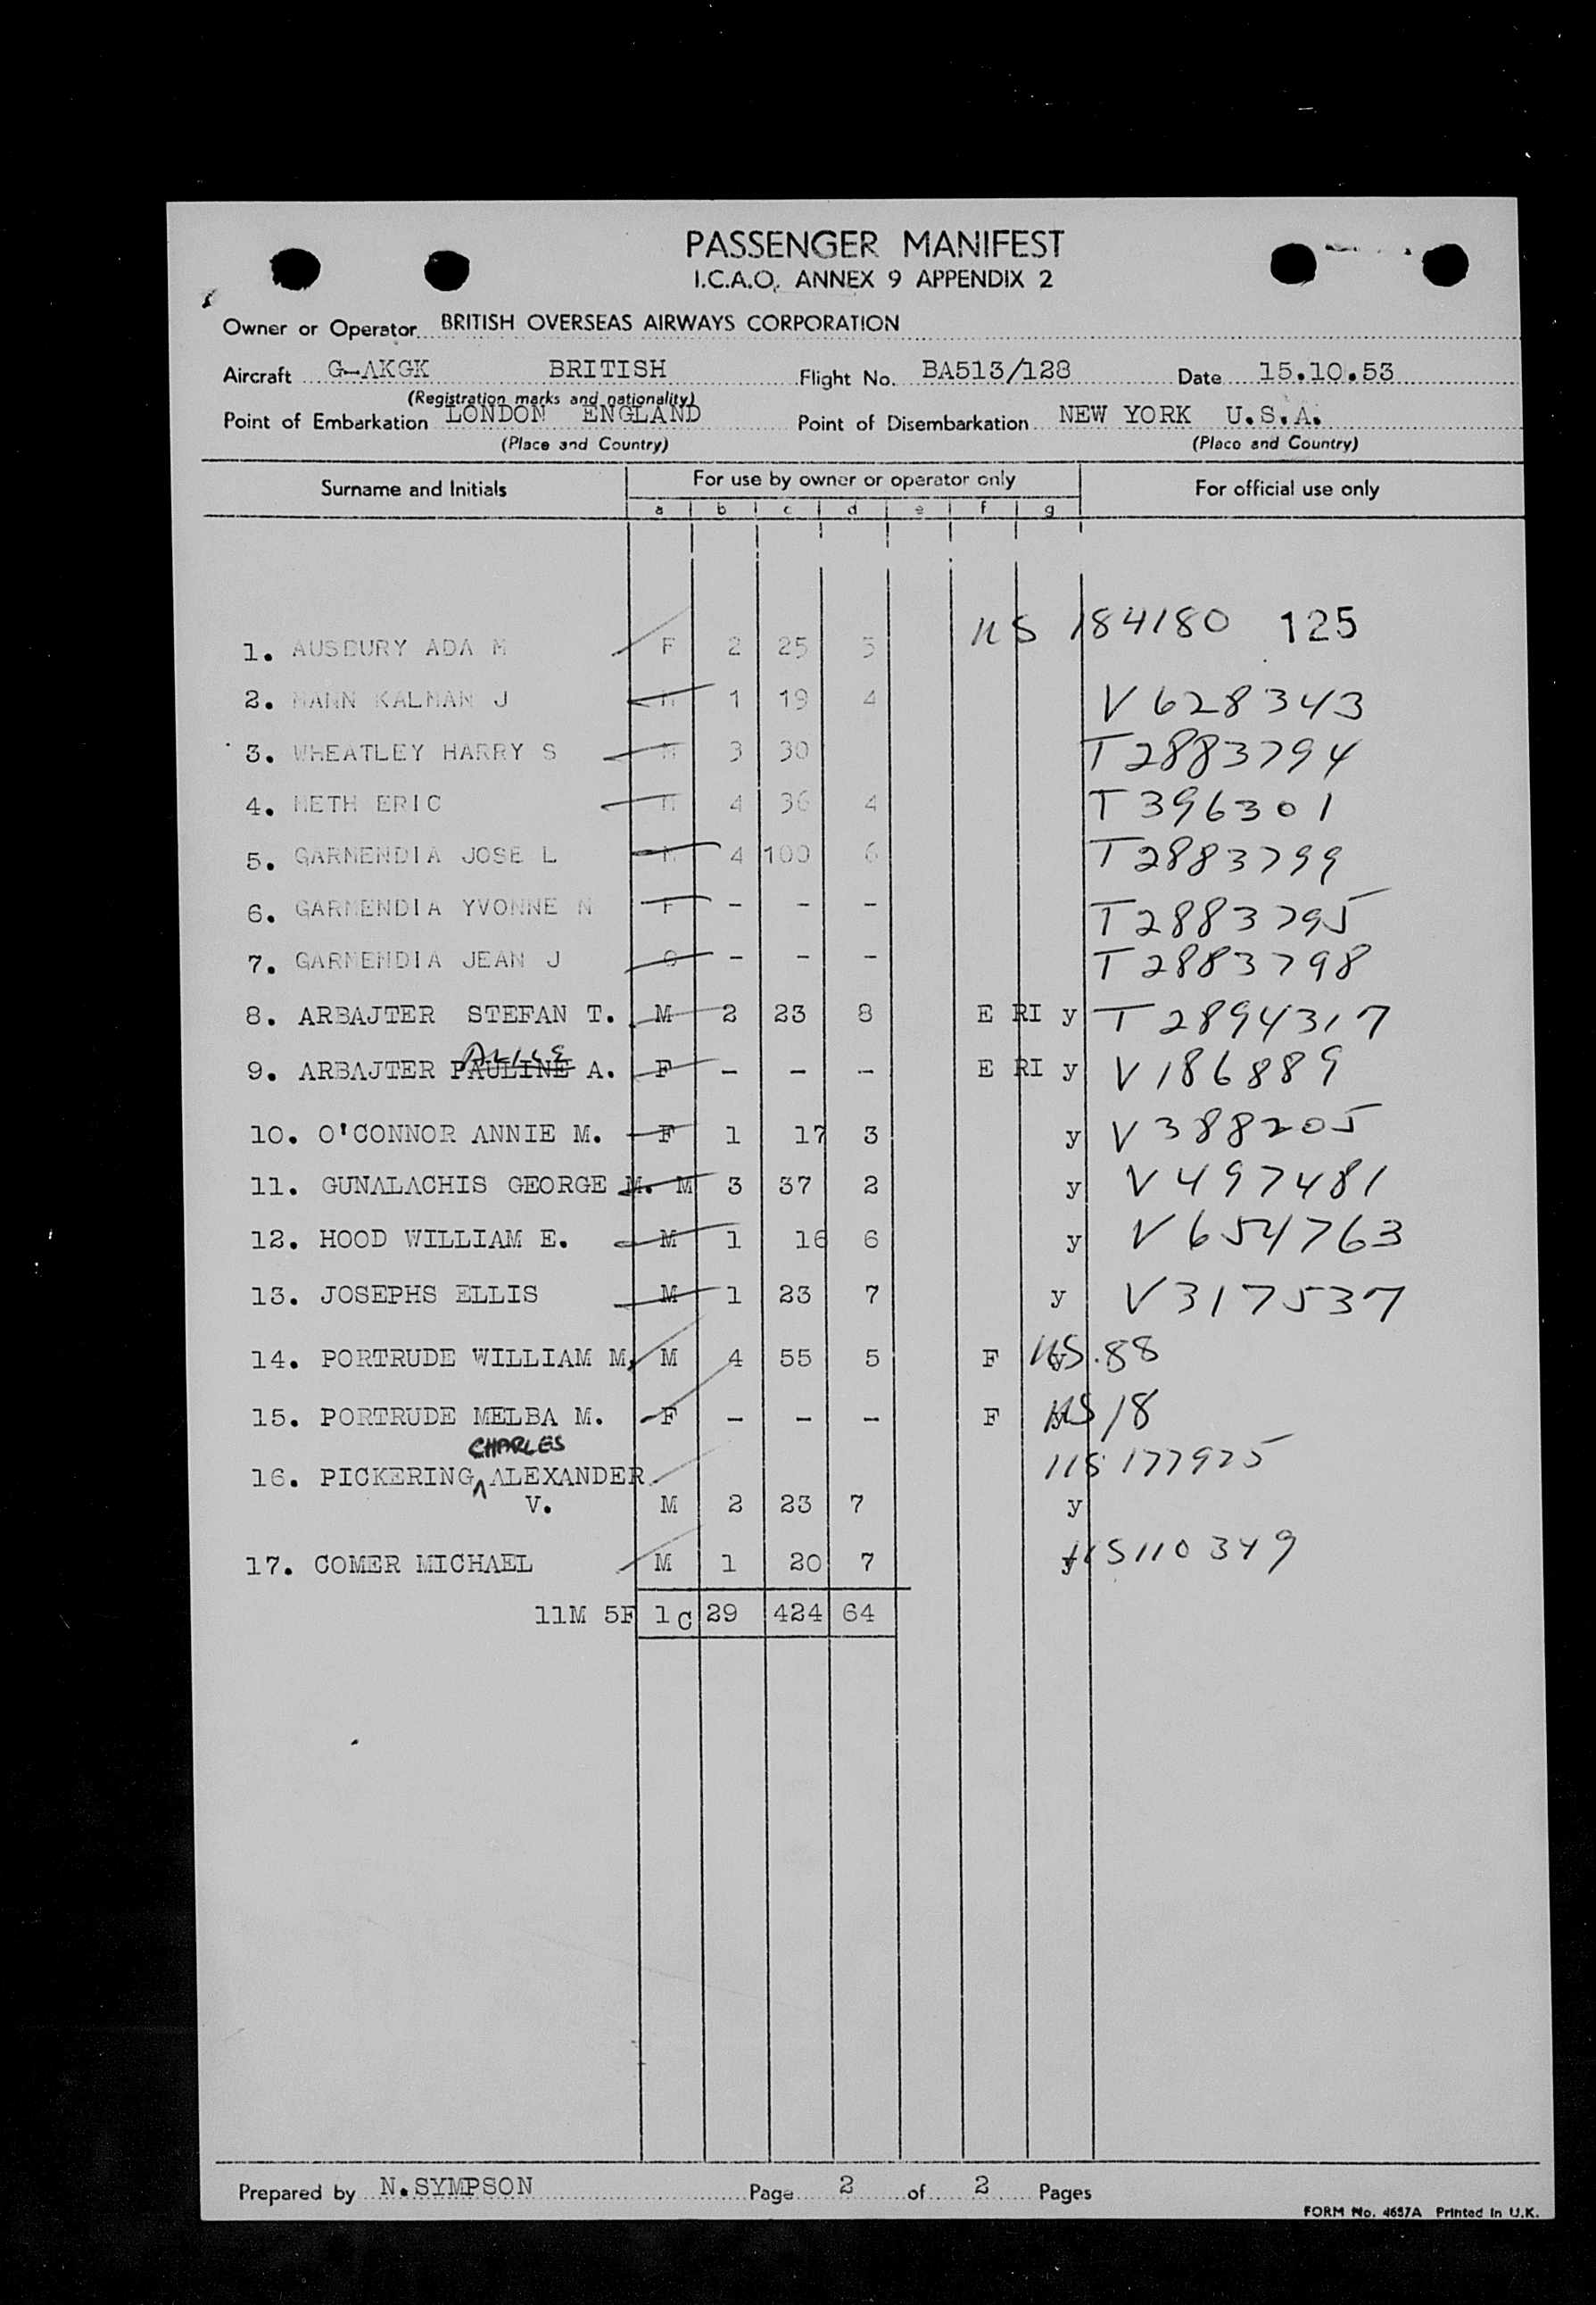 PASSENGER MANIFEST
I.C.A.O. ANNEX 9 APPENDIX 2
Owner or Operator BRITISH OVERSEAS AIRWAYS CORPORATION
Aircraft G-AKGK BRITISH Flight No. BA513/128 Date 15.10.53
(Registration marks and nationality)
Point of Embarkation LONDON ENGLAND Point of Disembarkation NEW YORK U.S.A.
(Place and Country) (Place and Country)
Surname and Initials For use by owner or operator only For official use only
a b c d e f g
1. AUSBURY ADA M F 2 25 5 US 184180 125
2. MANN KALMAN J M 1 19 4 V628343
3. WHEATLEY HARRY S M 3 30 T2883794
4. METH ERIC M 4 36 4 T396301
5. GARMENDIA JOSE L M 4 100 6 T2883799
6. GARMENDIA YVONNE N F - - - T2883795
7. GARMENDIA JEAN J C - - - T2883798
8. ARBAJTER STEFAN T. M 2 23 8 E RI y T2894317
9. ARBAJTER PAULINE ALICE A. F - - - E RI y V186889
10. O'CONNOR ANNIE M. F 1 17 3 y V388205
11. GUNALACHIS GEORGE M. M 3 37 2 y V497481
12. HOOD WILLIAM E. M 1 16 6 y V654763
13. JOSEPHS ELLIS M 1 23 7 y V317537
14. PORTRUDE WILLIAM M. M 4 55 5 F y US.88
15. PORTRUDE MELBA M. F - - - F y US18
CHARLES
16. PICKERING ALEXANDER US 177925
V. M 2 23 7 y
17. COMER MICHAEL M 1 20 7 y US110349
11M 5F 1C 29 424 64
Prepared by N. SYMPSON Page 2 of 2 Pages
FORM No. 4657A Printed in U.K.